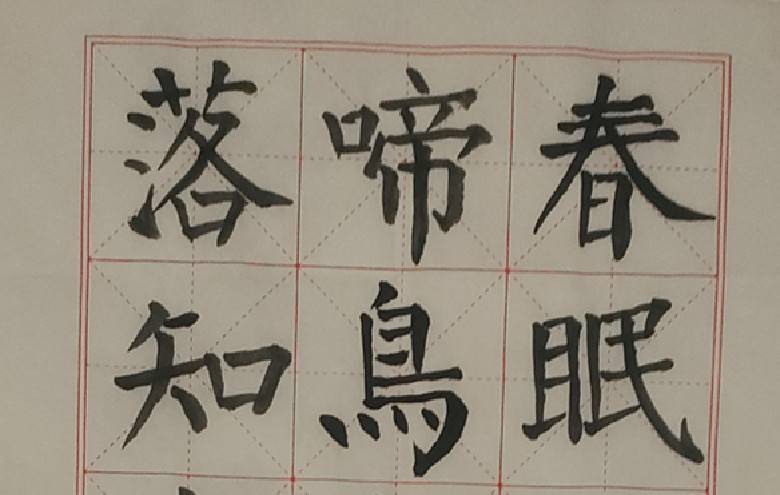 春眠
啼鳥
落知